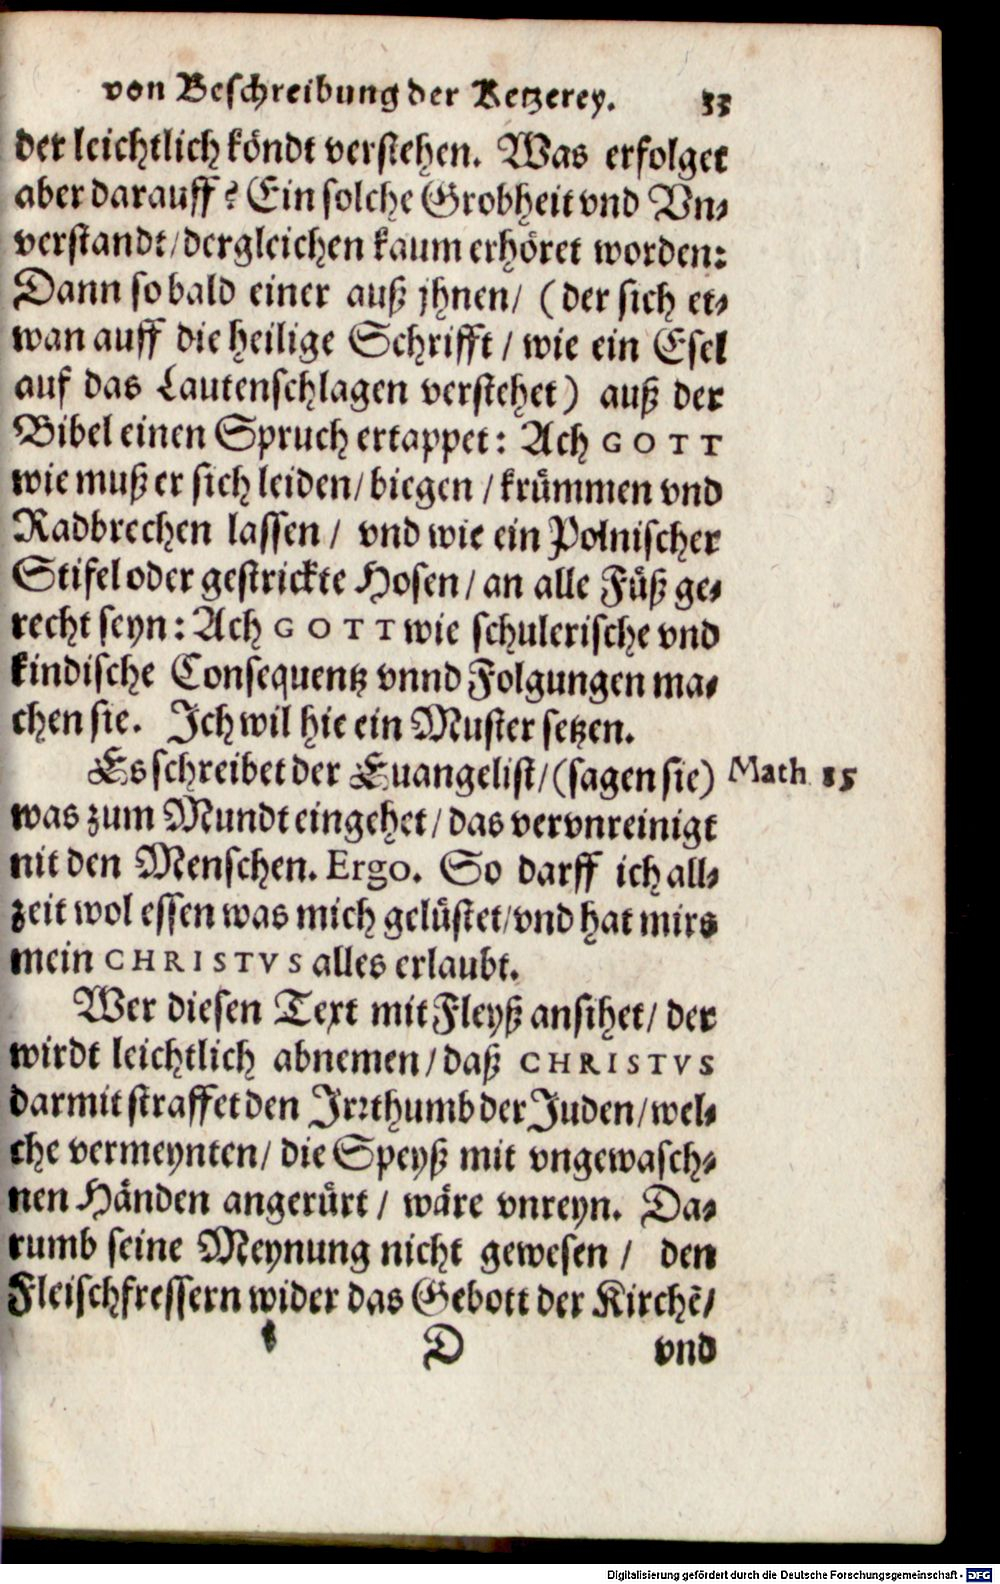 von Beschreibung der Ketzerey. 33
der leichtlich köndt verstehen. Was erfolget
aber darauff? Ein solche Grobheit vnd Vn-
verstandt/dergleichen kaum erhöret worden:
Dann so bald einer auß jhnen/ (der sich et-
wan auff die heilige Schrifft/ wie ein Esel
auf das Lautenschlagen verstehet) auß der
Bibel einen Spruch ertappet: Ach GOTT
wie muß er sich leiden/biegen/krümmen vnd
Radbrechen lassen/ vnd wie ein Polnischer
Stifel oder gestrickte Hosen/an alle Füß ge-
recht seyn: Ach GOTT wie schulerische vnd
kindische Consequentz vnnd Folgungen ma-
chen sie. Ich wil hie ein Muster setzen.
Es schreibet der Euangelist/(sagen sie) Math 15
was zum Mundt eingehet/das vervnreinigt
nit den Menschen. Ergo. So darff ich all-
zeit wol essen was mich gelüstet/vnd hat mirs
mein CHRISTVS alles erlaubt.
Wer diesen Text mit Fleyß ansihet/ der
wirdt leichtlich abnemen/daß CHRISTVS
darmit straffet den Irrthumb der Juden/wel-
che vermeynten/ die Speyß mit vngewasch-
nen Händen angerürt/ wäre vnreyn. Da-
rumb seine Meynung nicht gewesen/ den
Fleischfressern wider das Gebott der Kirchē/
D vnd
Digitalisierung gefördert durch die Deutsche Forschungsgemeinschaft - DFG